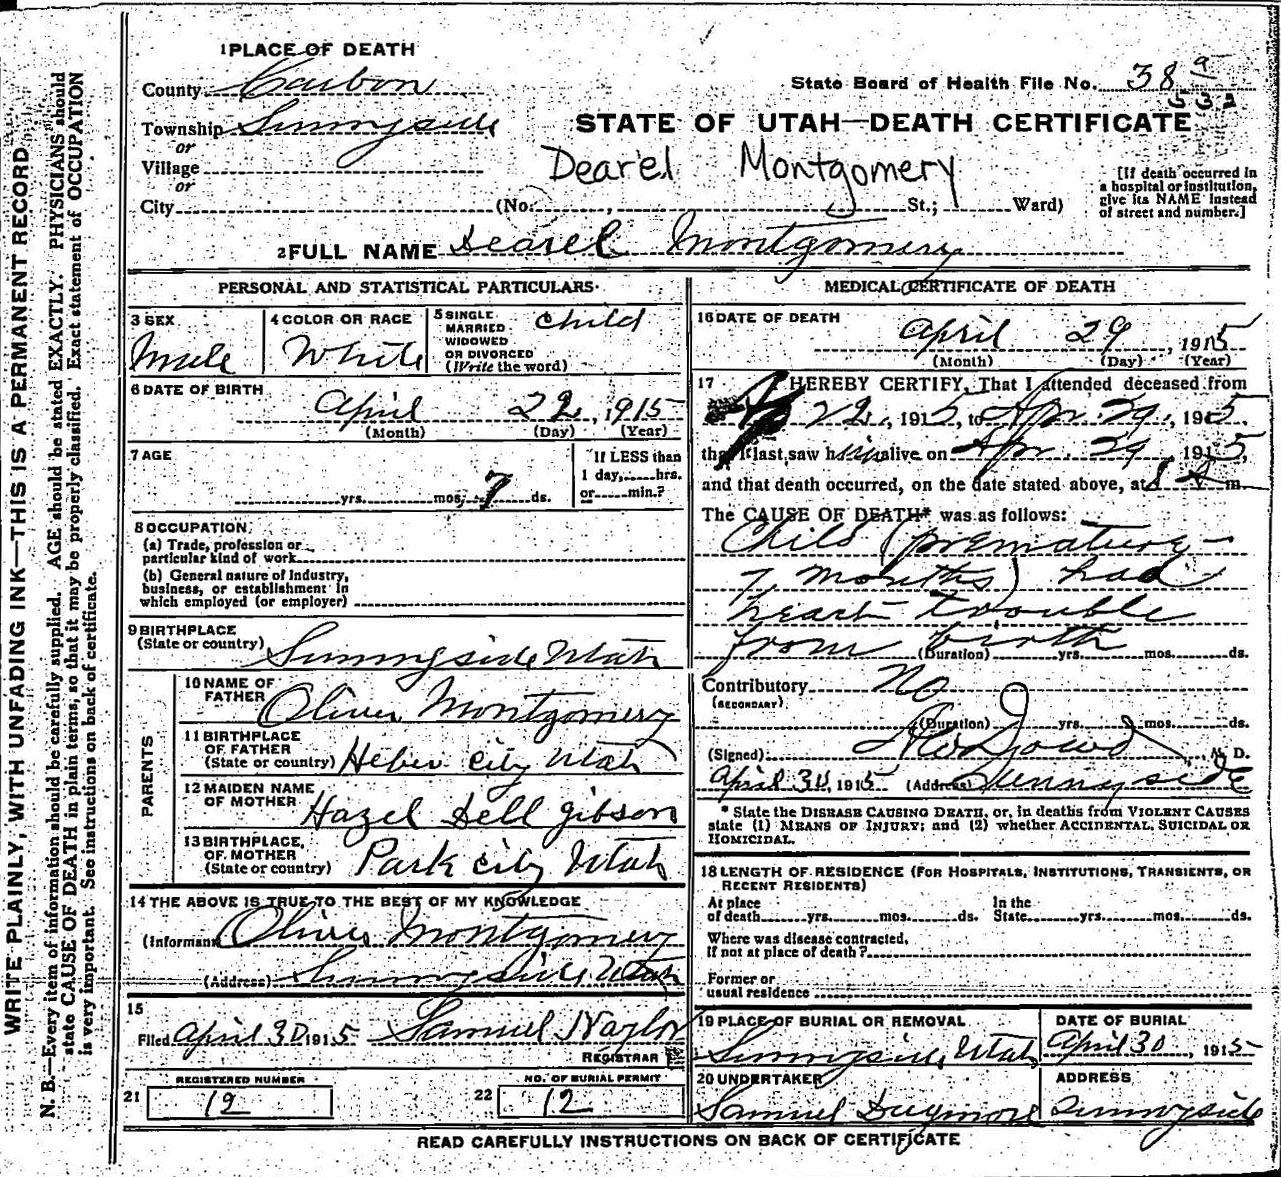 WRITE PLAINLY, WITH UNFADING INK—THIS IS A PERMANENT RECORD
N. B.—Every item of information should be carefully supplied. AGE should be stated EXACTLY. PHYSICIANS should
state CAUSE OF DEATH in plain terms, so that it may be properly classified. Exact statement of OCCUPATION
is very important. See instructions on back of certificate.
1 PLACE OF DEATH
County Carbon
State Board of Health File No. 38
Township Sunnyside
or
STATE OF UTAH—DEATH CERTIFICATE
Village
or
Dearel Montgomery
[If death occurred in
a hospital or institution,
give its NAME instead
of street and number.]
City (No. , St.; Ward)
2 FULL NAME Dearel Montgomery
PERSONAL AND STATISTICAL PARTICULARS
3 SEX
Male
4 COLOR OR RACE
White
5 SINGLE
MARRIED
WIDOWED
OR DIVORCED
(Write the word)
Child
6 DATE OF BIRTH
April 22, 1915
(Month) (Day) (Year)
7 AGE
yrs. mos. 7 ds.
If LESS than
1 day, hrs.
or min.?
8 OCCUPATION
(a) Trade, profession or
particular kind of work
(b) General nature of Industry,
business, or establishment in
which employed (or employer)
9 BIRTHPLACE
(State or country) Sunnyside Utah
PARENTS
10 NAME OF
FATHER Oliver Montgomery
11 BIRTHPLACE
OF FATHER
(State or country) Heber City Utah
12 MAIDEN NAME
OF MOTHER Hazel Dell Gibson
13 BIRTHPLACE
OF MOTHER
(State or country) Park City Utah
14 THE ABOVE IS TRUE TO THE BEST OF MY KNOWLEDGE
(Informant Oliver Montgomery
(Address) Sunnyside Utah
15
Filed April 30 1915 Samuel Naylor
REGISTRAR
REGISTERED NUMBER
21 12
NO. OF BURIAL PERMIT
22 12
MEDICAL CERTIFICATE OF DEATH
16 DATE OF DEATH
April 29, 1915
(Month) (Day) (Year)
17 I HEREBY CERTIFY, That I attended deceased from
22, 1915, to Apr. 29, 1915,
that I last saw him alive on Apr. 29, 1915,
and that death occurred, on the date stated above, at 8 A m.
The CAUSE OF DEATH* was as follows:
Child (premature—
7 months) had
heart trouble
from birth
(Duration) yrs. mos. ds.
Contributory No
(SECONDARY)
(Duration) yrs. mos. ds.
(Signed) M. D.
April 30, 1915 (Address) Sunnyside
* State the DISEASE CAUSING DEATH, or, in deaths from VIOLENT CAUSES
state (1) MEANS OF INJURY; and (2) whether ACCIDENTAL, SUICIDAL OR
HOMICIDAL.
18 LENGTH OF RESIDENCE (FOR HOSPITALS, INSTITUTIONS, TRANSIENTS, OR
RECENT RESIDENTS)
At place
of death yrs. mos. ds.
In the
State yrs. mos. ds.
Where was disease contracted,
if not at place of death?
Former or
usual residence
19 PLACE OF BURIAL OR REMOVAL
Sunnyside, Utah
DATE OF BURIAL
April 30, 1915
20 UNDERTAKER
Samuel
ADDRESS
Sunnyside
READ CAREFULLY INSTRUCTIONS ON BACK OF CERTIFICATE